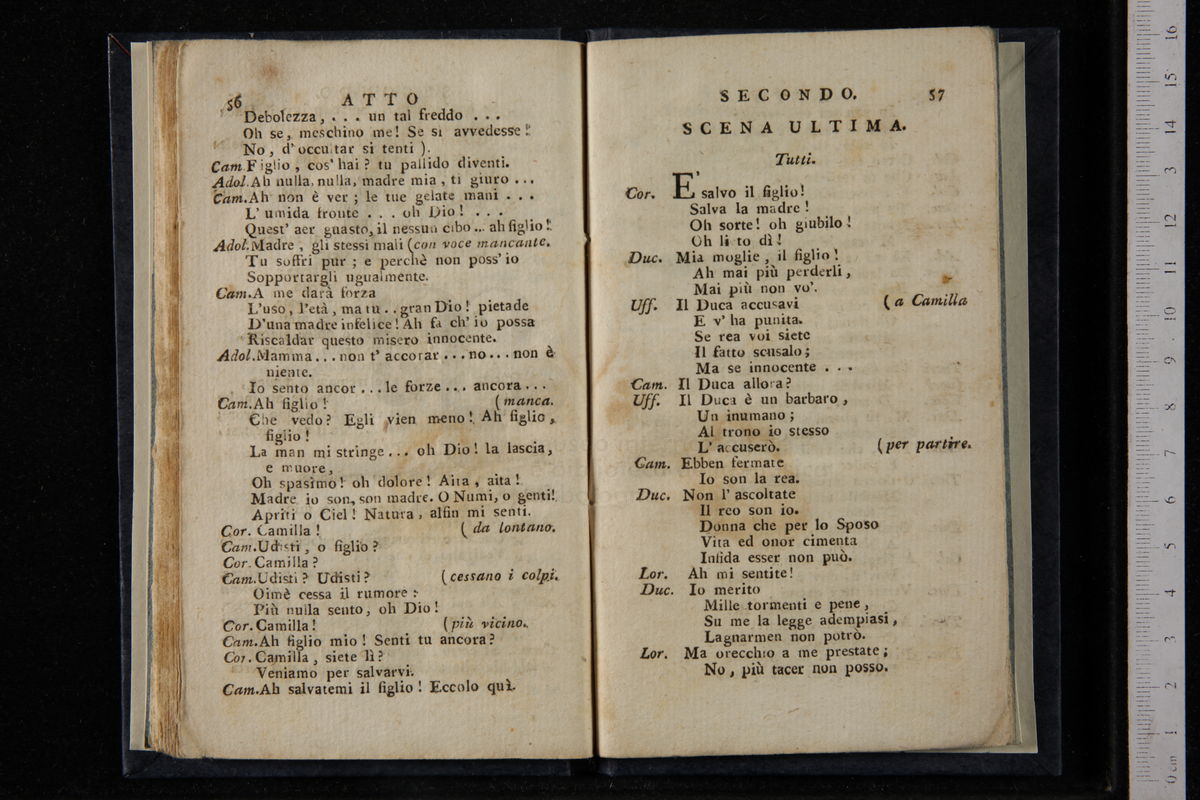 56
ATTO
Debolezza, . . . un tal freddo . . .
Oh se, meschino me! Se si avvedesse!
No, d'occultar si tenti ).
Cam. Figlio, cos' hai? tu pallido diventi.
Adol. Ah nulla, nulla, madre mia, ti giuro ...
Cam. Ah non è ver; le tue gelate mani . . .
L' umida fronte . . . oh Dio! . . .
Quest' aer guasto, il nessun cibo ... ah figlio!
Adol. Madre, gli stessi mali (con voce mancante.
Tu soffri pur; e perchè non poss' io
Sopportargli ugualmente.
Cam. A me darà forza
L'uso, l'età, ma tu . . gran Dio! pietade
D'una madre infelice! Ah fa ch' io possa
Riscaldar questo misero innocente.
Adol. Mamma ... non t' accorar ... no ... non è
niente.
Io sento ancor ... le forze ... ancora ...
Cam. Ah figlio! (manca.
Che vedo? Egli vien meno! Ah figlio,
figlio!
La man mi stringe ... oh Dio! la lascia,
e muore,
Oh spasimo! oh dolore! Aita, aita!
Madre io son, son madre. O Numi, o genti!
Apriti o Ciel! Natura, alfin mi senti.
Cor. Camilla! ( da lontano.
Cam. Udisti, o figlio?
Cor. Camilla?
Cam. Udisti? Udisti? (cessano i colpi.
Oimè cessa il rumore:
Più nulla sento, oh Dio!
Cor. Camilla! (più vicino.
Cam. Ah figlio mio! Senti tu ancora?
Cor. Camilla, siete lì?
Veniamo per salvarvi.
Cam. Ah salvatemi il figlio! Eccolo quì.
SECONDO.
57
SCENA ULTIMA.
Tutti.
Cor. E' salvo il figlio!
Salva la madre!
Oh sorte! oh giubilo!
Oh li to dì!
Duc. Mia moglie, il figlio!
Ah mai più perderli,
Mai più non vo'.
Uff. Il Duca accusavi ( a Camilla
E v' ha punita.
Se rea voi siete
Il fatto scusalo;
Ma se innocente . . .
Cam. Il Duca allora?
Uff. Il Duca è un barbaro,
Un inumano;
Al trono io stesso
L' accuserò. (per partire.
Cam. Ebben fermate
Io son la rea.
Duc. Non l' ascoltate
Il reo son io.
Donna che per lo Sposo
Vita ed onor cimenta
Infida esser non può.
Lor. Ah mi sentite!
Duc. Io merito
Mille tormenti e pene,
Su me la legge adempiasi,
Lagnarmen non potrò.
Lor. Ma orecchio a me prestate;
No, più tacer non posso.
0 cm 1 2 3 4 5 6 7 8 9 10 11 12 13 14 15 16